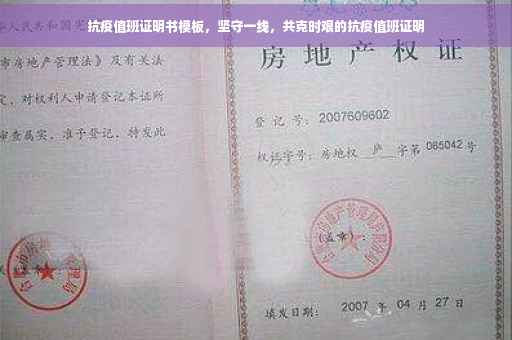 抗疫值班证明书模板，坚守一线，共克时艰的抗疫值班证明
人民共和国宪
市房地产管理法》及有关法
定，对权利人申请登记本证所
审查属实，准予登记，特发此
房地产权证
登记号：2007609602
权证字号：房地权 庐 字第 065042 号
(盖章)：
填发日期：2007 年 04 月 27 日